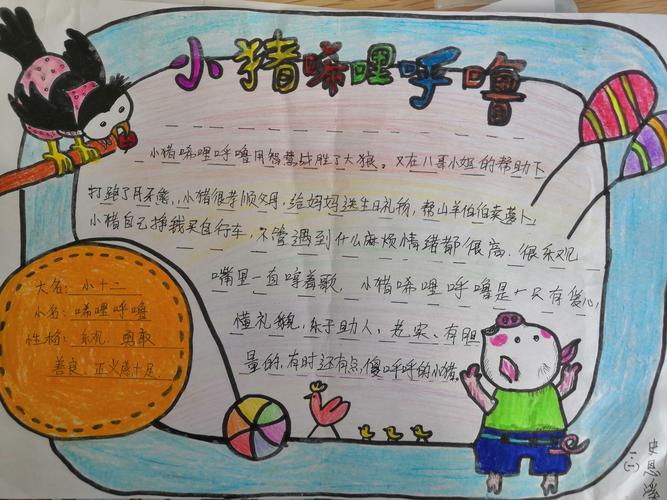 小猪唏哩呼噜
小猪唏哩呼噜用智慧战胜了大狼。又在八哥小姐的帮助下
打跑了月牙熊,小猪很孝顺父母,给妈妈送生日礼物,帮山羊伯伯卖萝卜,
小猪自己挣钱买自行车,不管遇到什么麻烦情绪都很高、很乐观
嘴里一直哼着歌,小猪唏哩呼噜是一只有爱心,
懂礼貌,乐于助人,老实、有胆
量的,有时还有点傻呼呼的小猪。
大名:小十二
小名:唏哩呼噜
性格:乐观、勇敢
善良、正义感十足
史恩
1.(1)